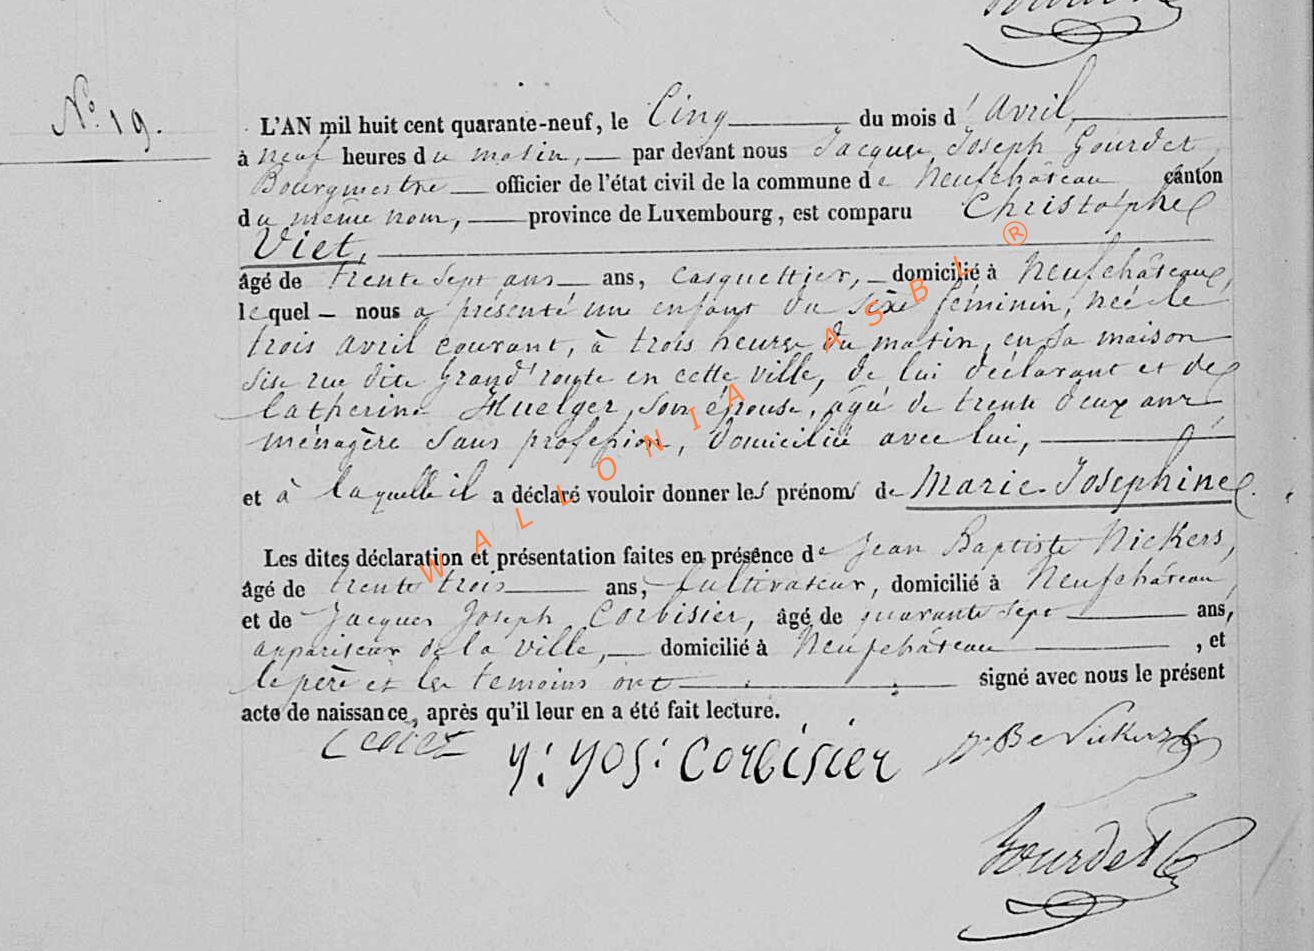 No. 19.
L'AN mil huit cent quarante-neuf, le Cinq du mois d'Avril,
à neuf heures du matin, par devant nous Jacques Joseph Gourdet,
Bourgmestre officier de l'état civil de la commune de Neufchâteau canton
du même nom, province de Luxembourg, est comparu Christophe
Viet,
âgé de trente sept ans ans, casquettier, domicilié à Neufchâteau,
lequel nous a présenté une enfant du sexe féminin, née le
trois avril courant, à trois heures du matin, en sa maison
sise rue dite Grand'route en cette ville, de lui déclarant et de
Catherine Huelger, son épouse, âgée de trente deux ans
ménagère sans profession, domiciliée avec lui,
et à laquelle il a déclaré vouloir donner les prénoms de Marie-Joséphine.
Les dites déclaration et présentation faites en présence de Jean Baptiste Nickers,
âgé de trente trois ans, Cultivateur, domicilié à Neufchâteau
et de Jacques Joseph Corbisier, âgé de quarante sept ans,
appariteur de la ville, domicilié à Neufchâteau, et
le père et les témoins ont signé avec nous le présent
acte de naissance, après qu'il leur en a été fait lecture.
y: yos: Corbisier
Gourdet
WALLONIA ASBL ®